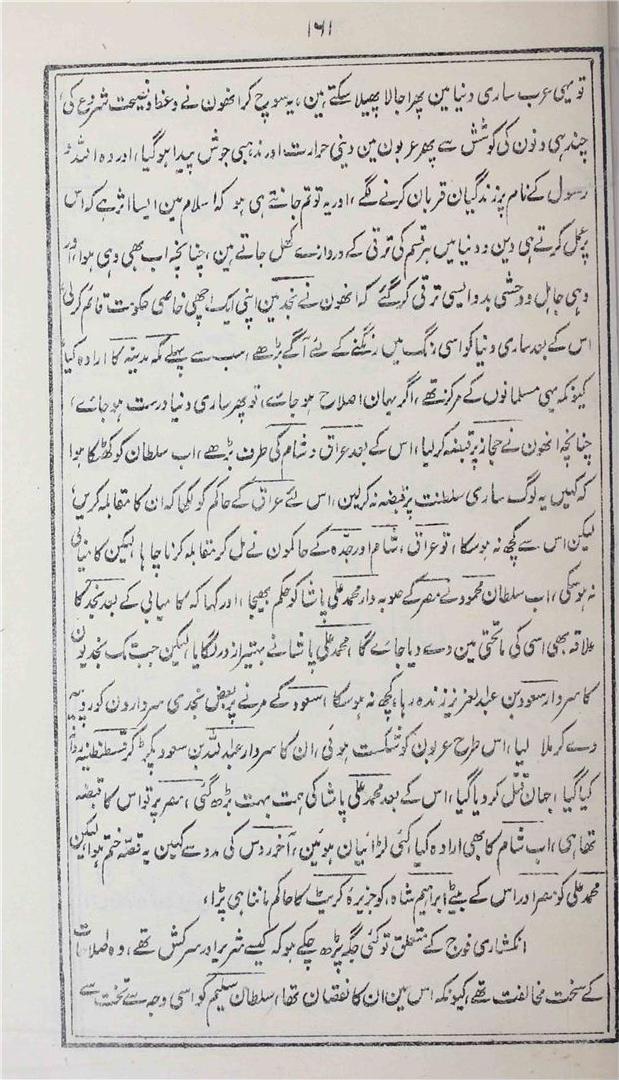 ۱۶۱
تو یہی عرب ساری دنیا مین پھر اجالا پھیلا سکتے ہین، یہ سوچ کر انھون نے وعظ و نصیحت شروع کی
چند ہی دنون کی کوشش سے پھر عربون مین دینی حرارت، اور مذہبی جوش پیدا ہو گیا، اور وہ اللہ
رسول کے نام پر زندگیان قربان کرنے لگے، اور یہ تو تم جانتے ہی ہو کہ اسلام مین ایسا اثر ہے کہ اس
پر عمل کرتے ہی دین و دنیا میں ہر قسم کی ترقی کے دروازے کھل جاتے ہین، چنانچہ اب بھی وہی ہوا، اور
وہی جاہل و وحشی بدو ایسی ترقی کر گئے کہ انھون نے نجد مین اپنی ایک اچھی خاصی حکومت قائم کر لی
اس کے بعد ساری دنیا کو اسی رنگ میں رنگنے کے لئے آگے بڑھے، سب سے پہلے مکہ مدینہ کا ارادہ کیا
کیونکہ یہی مسلمانوں کے مرکز تھے، اگر یہان اصلاح ہو جائے، تو پھر ساری دنیا درست ہو جائے،
چنانچہ انھون نے حجاز پر قبضہ کر لیا، اس کے بعد عراق و شام کی طرف بڑھے، اب سلطان کو کھٹکا ہوا
کہ کہیں یہ لوگ ساری سلطنت پر قبضہ نہ کر لین، اس لئے عراق کے حاکم کو لکھا کہ ان کا مقابلہ کریں
لیکن اس سے کچھ نہ ہو سکا، تو عراق، شام اور جدہ کے حاکمون نے مل کر مقابلہ کرنا چاہا لیکن کامیابی
نہ ہو سکی، اب سلطان محمود نے مصر کے صوبہ دار محمد علی پاشا کو حکم بھیجا، اور کہا کہ کامیابی کے بعد نجد کا
علاقہ بھی اسی کی ماتحتی مین دے دیا جائے گا، محمد علی پاشا نے بہتیرا زور لگایا، لیکن جب تک نجدیون
کا سردار سعود بن عبد العزیز زندہ رہا، کچھ نہ ہو سکا، سعود کے مرنے پر بعض نجدی سردارون کو روپیہ
دے کر ملا لیا، اس طرح عربون کو شکست ہوئی، ان کا سردار عبد اللہ بن سعود پکڑ کر قسطنطنیہ روانہ
کیا گیا، جہان قتل کر دیا گیا، اس کے بعد محمد علی پاشا کی ہمت بہت بڑھ گئی، مصر پر تو اس کا قبضہ
تھا ہی، اب شام کا بھی ارادہ کیا، کئی لڑائیان ہوئین، آخر روس کی مدد سے کہین یہ قصہ ختم ہوا، لیکن
محمد علی کو مصر اور اس کے بیٹے ابراہیم شاہ، کو جزیرہ کریٹ کا حاکم ماننا ہی پڑا،
انکشاری فوج کے متعلق تو کئی جگہ پڑھ چکے ہو کہ کیسے شریر اور سرکش تھے، وہ اصلاحات
کے سخت مخالفت تھے، کیونکہ اس مین ان کا نقصان تھا، سلطان سلیم کو اسی وجہ سے تخت سے